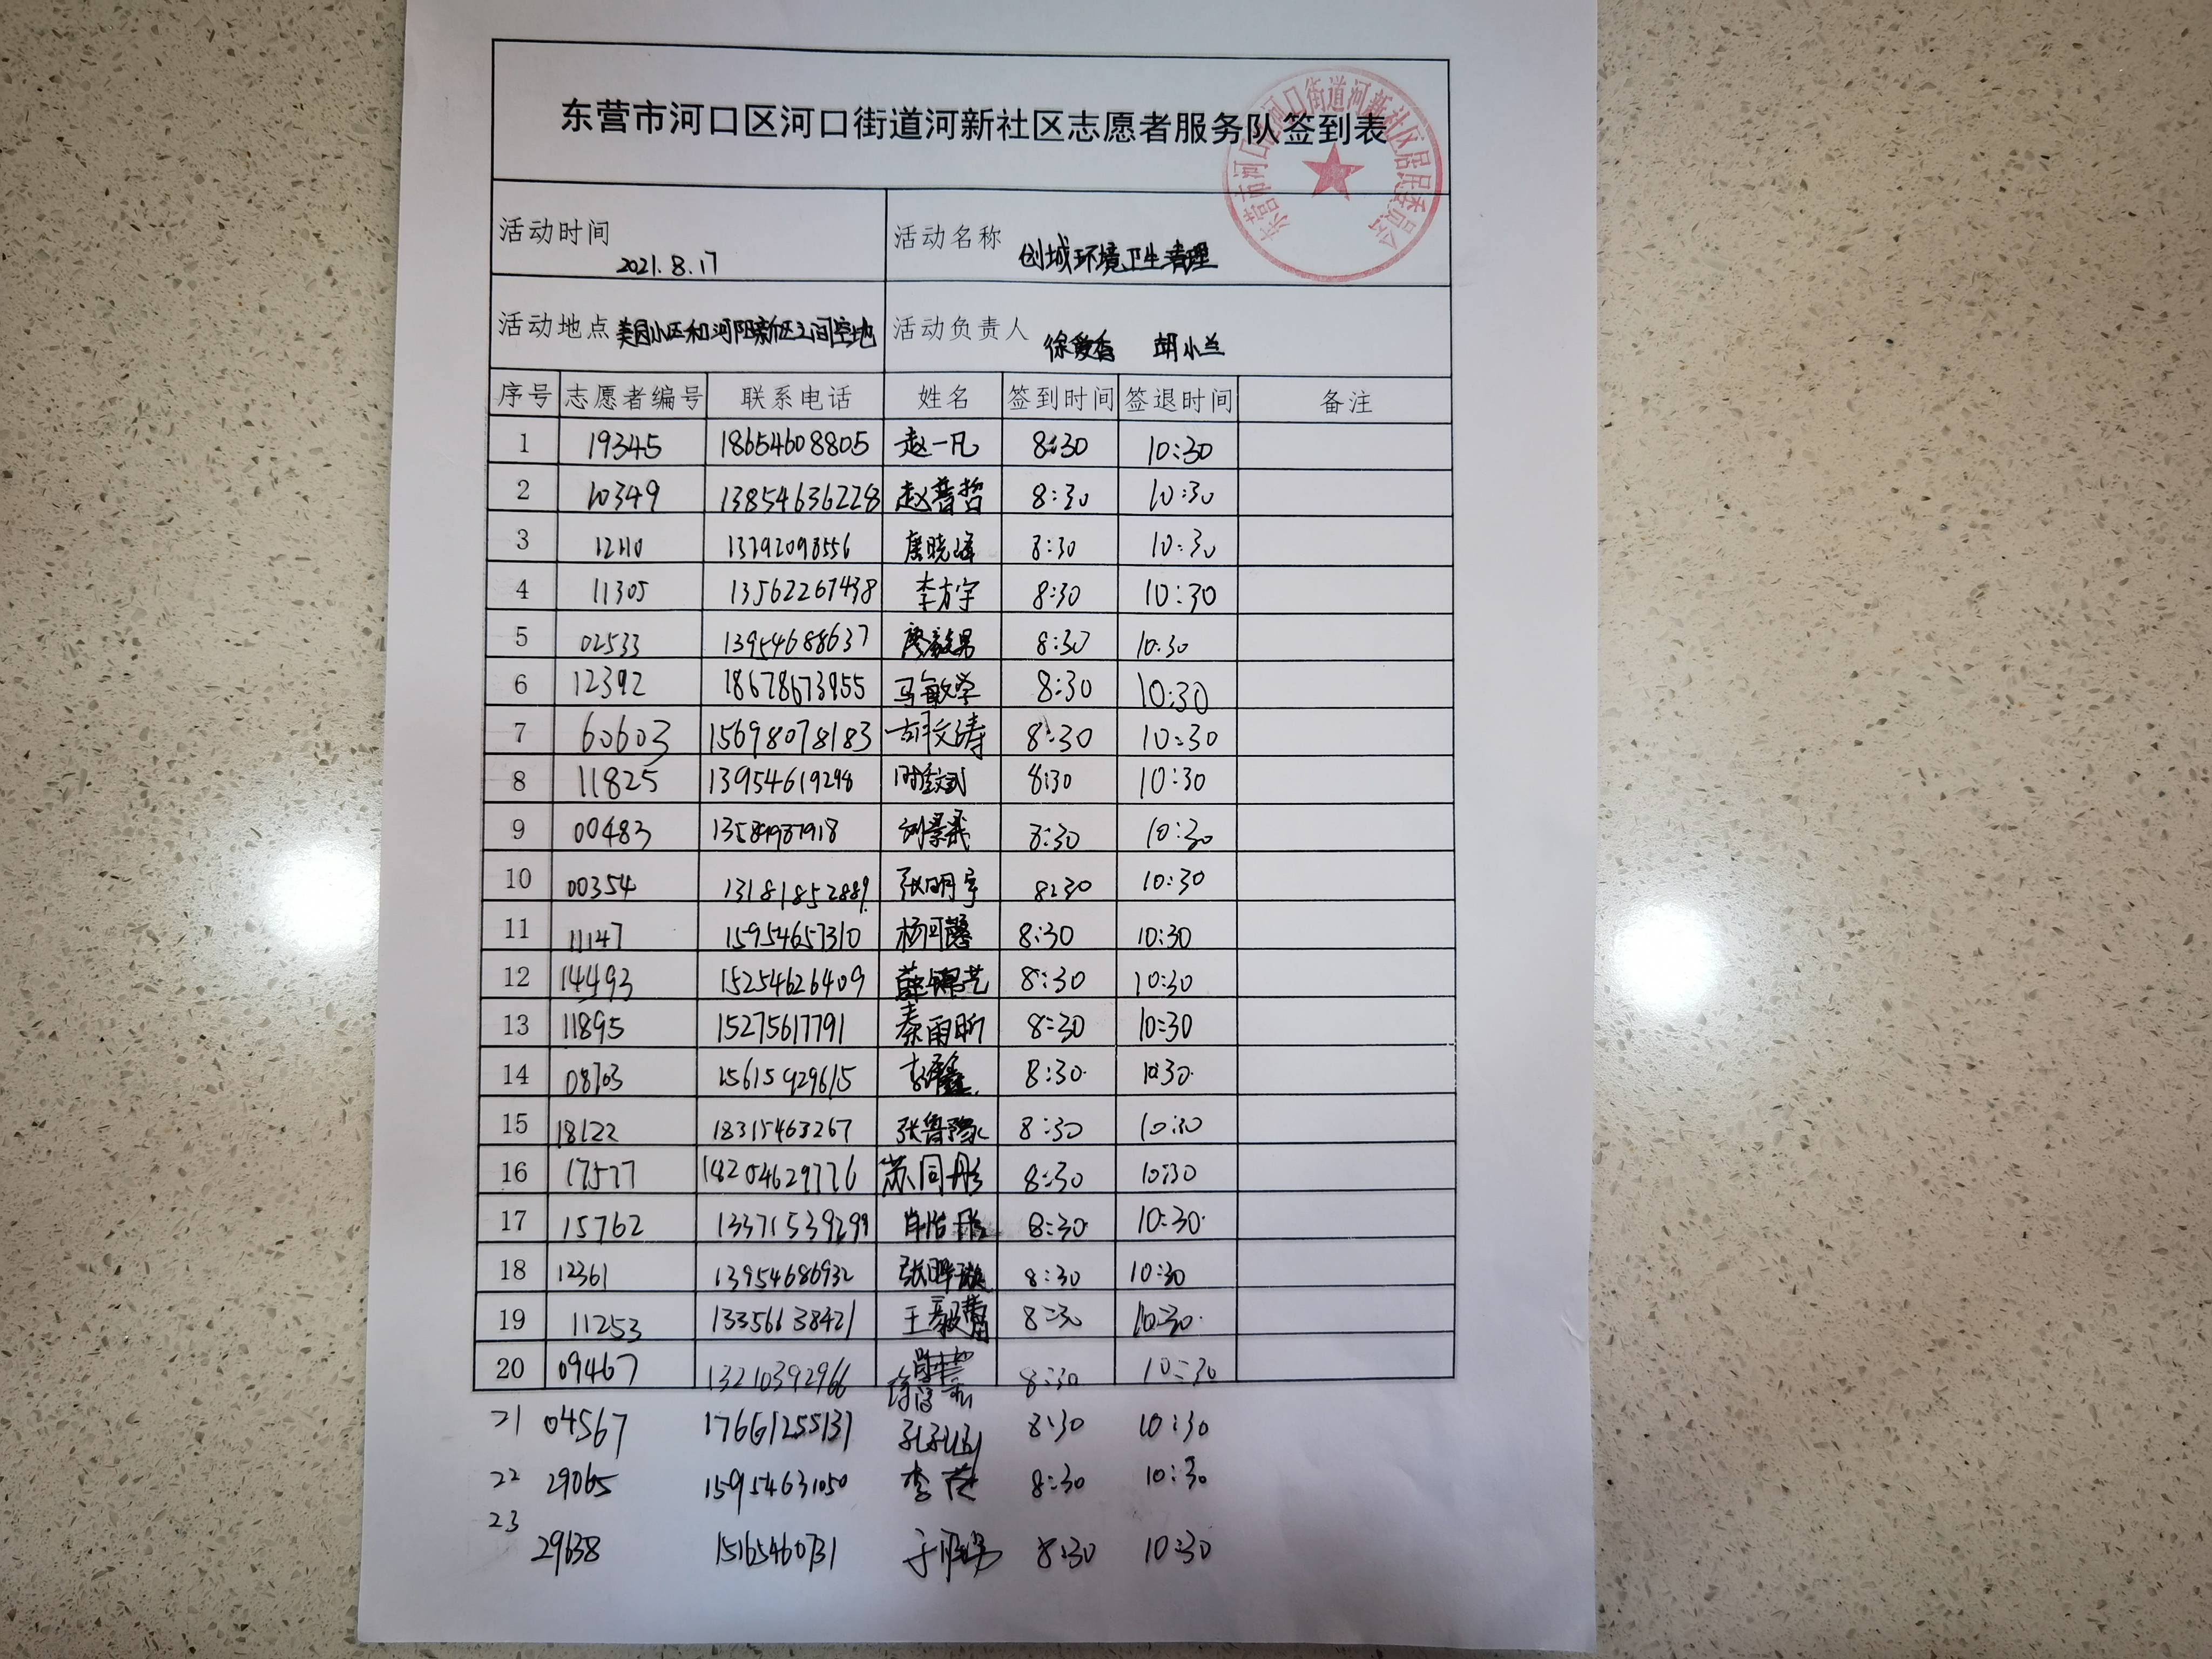 东营市河口区河口街道河新社区志愿者服务队签到表
东营市河口区河口街道河新社区居民委员会
活动时间 2021.8.17 活动名称 创城环境卫生清理
活动地点 美园小区和河阳新区之间空地 活动负责人 徐爱香 胡小兰
序号 志愿者编号 联系电话 姓名 签到时间 签退时间 备注
1 19345 18654608805 赵一凡 8:30 10:30
2 10349 13854636228 赵普哲 8:30 10:30
3 12110 13792098556 唐晓峰 8:30 10:30
4 11305 13562267438 李方宇 8:30 10:30
5 02533 13954688637 8:30 10:30
6 12392 18678673955 马敏学 8:30 10:30
7 60603 15698078183 胡文涛 8:30 10:30
8 11825 13954619298 8:30 10:30
9 00483 13589987918 刘景飛 8:30 10:30
10 00354 13181852889 张明宇 8:30 10:30
11 11147 15954657310 杨可馨 8:30 10:30
12 14493 15254626409 薛锦艺 8:30 10:30
13 11895 15275617791 秦雨昕 8:30 10:30
14 08703 15615929615 8:30 10:30
15 18122 18315463267 张鲁豫 8:30 10:30
16 17577 18204629776 苏同彤 8:30 10:30
17 15762 13371539299 8:30 10:30
18 12361 13954686932 8:30 10:30
19 11253 13356638421 8:30 10:30
20 09467 13210392966 8:30 10:30
21 04567 17661255131 8:30 10:30
22 29065 15954631050 8:30 10:30
23 29638 15165460731 8:30 10:30